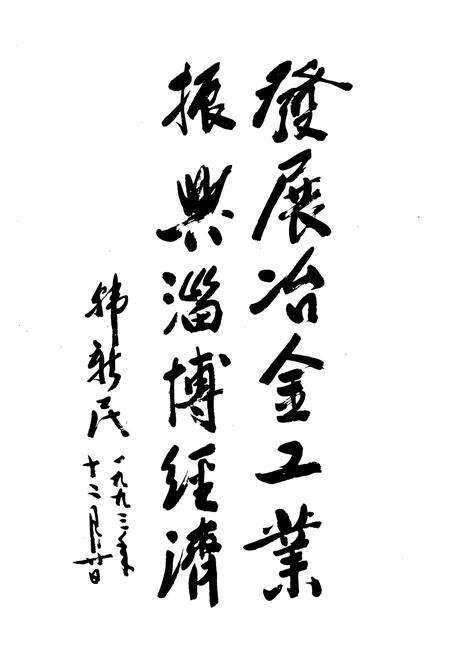 發展冶金工業
振興淄博經濟
韩新民
一九九三年
十二月廿日